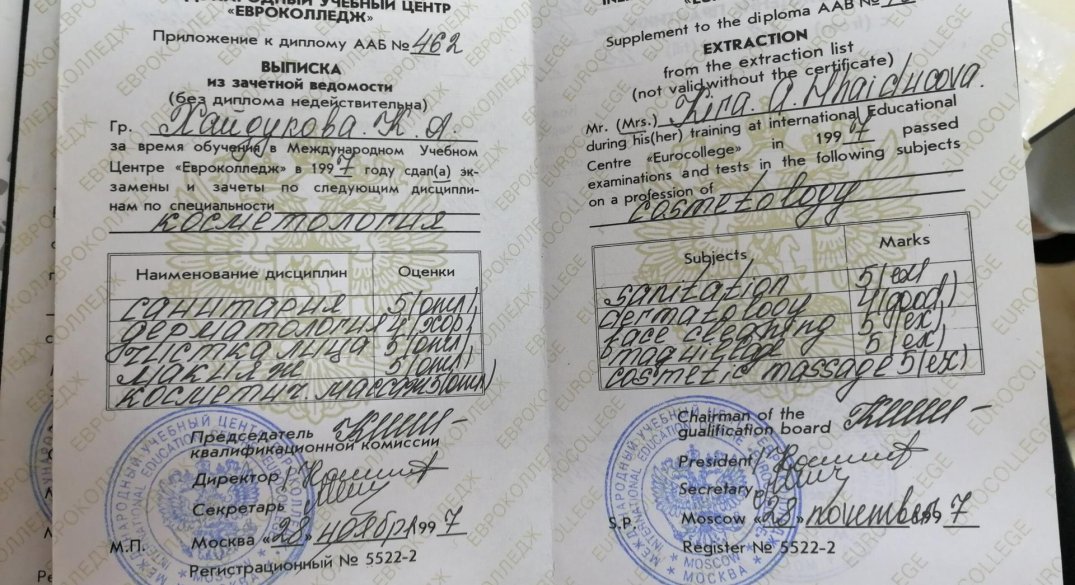 НАРОДНЫЙ УЧЕБНЫЙ ЦЕНТР
«ЕВРОКОЛЛЕДЖ»
Приложение к диплому ААБ № 462
ВЫПИСКА
из зачетной ведомости
(без диплома недействительна)
Гр. Хайдукова К. А.
за время обучения в Международном Учебном
Центре «Евроколледж» в 1997 году сдал(а) эк-
замены и зачеты по следующим дисципли-
нам по специальности
косметология
Наименование дисциплин Оценки
санитария 5(отл)
дерматология 4(хор)
чистка лица 5(отл)
макияж 5(отл)
косметич. массаж 5(отл)
Председатель
квалификационной комиссии
Директор
Секретарь
М.П. Москва «28» ноября 1997
Регистрационный № 5522-2
Supplement to the diploma AAB №
EXTRACTION
from the extraction list
(not valid without the certificate)
Mr. (Mrs.) Kira. A. Khaiducova.
during his(her) training at international Educational
Centre «Eurocollege» in 1997 passed
examinations and tests in the following subjects
on a profession of
cosmetology
Subjects Marks
sanitation 5(ex)
dermatology 4(good)
face cleaning 5(ex)
maquillage 5(ex)
cosmetic massage 5(ex)
Chairman of the
gualification board
President
Secretary
S.P. Moscow «28» november 1997
Register № 5522-2